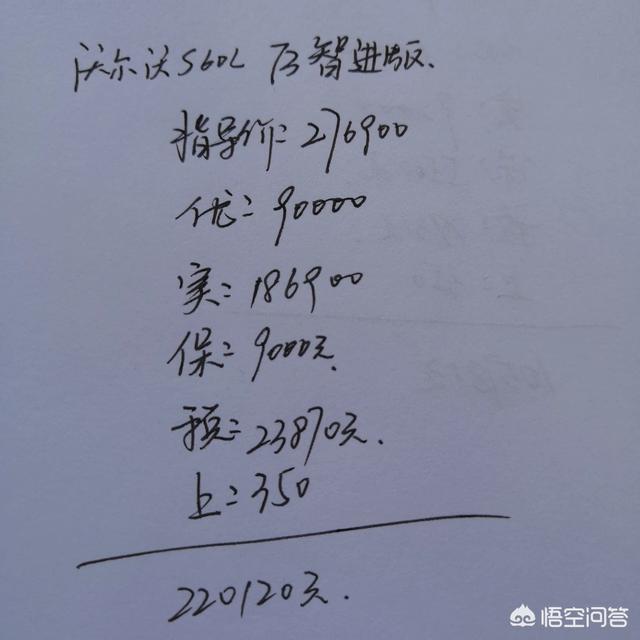 沃尔沃S60L T3智进版.
指导价:276900
优:90000
实:186900
保:9000元.
预:23870元.
上:350
220120元.
悟空问答